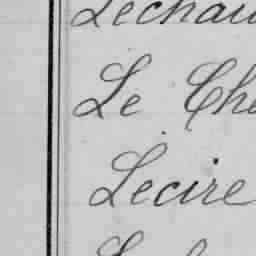 Lechau
Le Che
Lecire